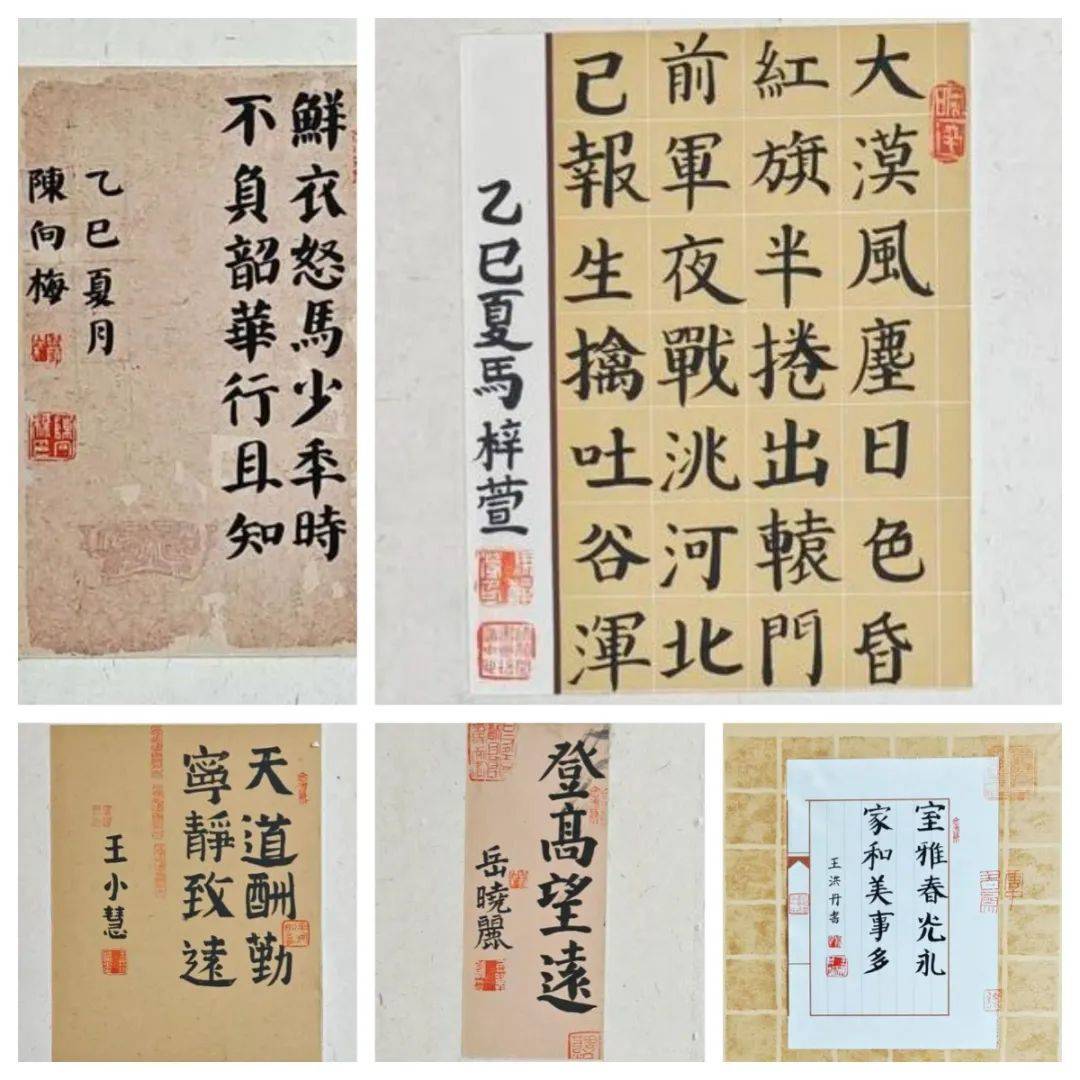 鮮衣怒馬少年時
不負韶華行且知
乙巳夏月
陳向梅
大漠風塵日色昏
紅旗半捲出轅門
前軍夜戰洮河北
已報生擒吐谷渾
乙巳夏馬梓萱
天道酬勤
寧靜致遠
王小慧
登高望遠
岳曉麗
室雅春光永
家和美事多
王洪丹書